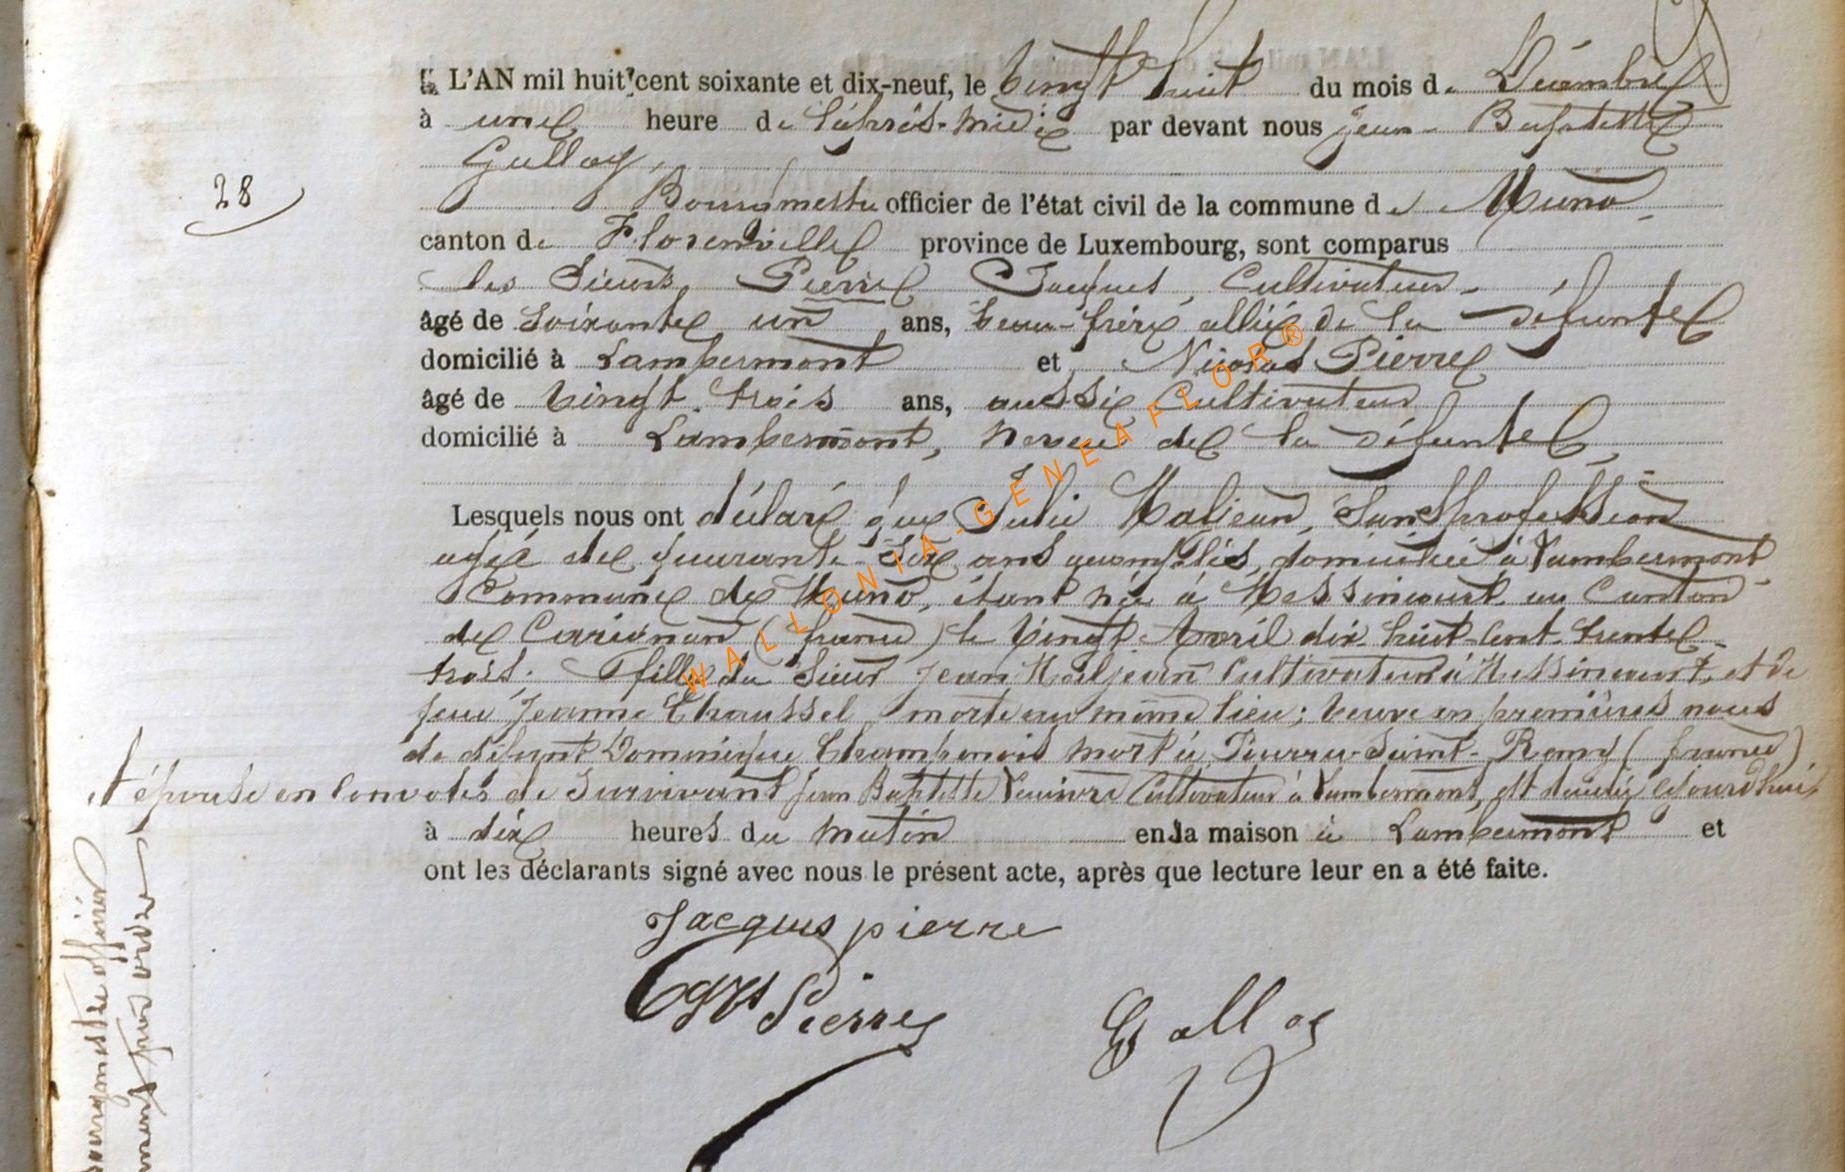 L'AN mil huit cent soixante et dix-neuf, le Vingt huit du mois de Décembre
à une heure de l'après-midi par devant nous Jean-Baptiste
Galloy,
28
Bourgmestre officier de l'état civil de la commune de Muno
canton de Florenville province de Luxembourg, sont comparus
les Sieurs, Pierre Jacques, Cultivateur,
âgé de Soixante un ans, beau-frère allié de la défunte
domicilié à Lambermont et Nicolas Pierre
âgé de Vingt-trois ans, aussi Cultivateur
domicilié à Lambermont, neveu de la défunte,
Lesquels nous ont déclaré que Julie Maljean, Sans profession
agée de quarante-Six ans domiciliée à Lambermont
Commune de Muno, étant née à Messincourt au Canton
de Carignan (france) le Vingt Avril dix-huit-Cent-trente-
trois. fille du Sieur Jean Maljean Cultivateur à Messincourt, et de
feue Jeanne Chaussel morte au même lieu; Veuve en premières noces
de défunt Dominique Champenois mort à Pourru-Saint-Remy (france)
et épouse en de Survivant Jean Baptiste Cultivateur à Lambermont, est décédée cejourd'hui,
à dix heures du matin en sa maison à Lambermont et
ont les déclarants signé avec nous le présent acte, après que lecture leur en a été faite.
Jacques pierre
Pierre
Galloy
bourgmestre officier
WALLONIA-GENEAFLOR®